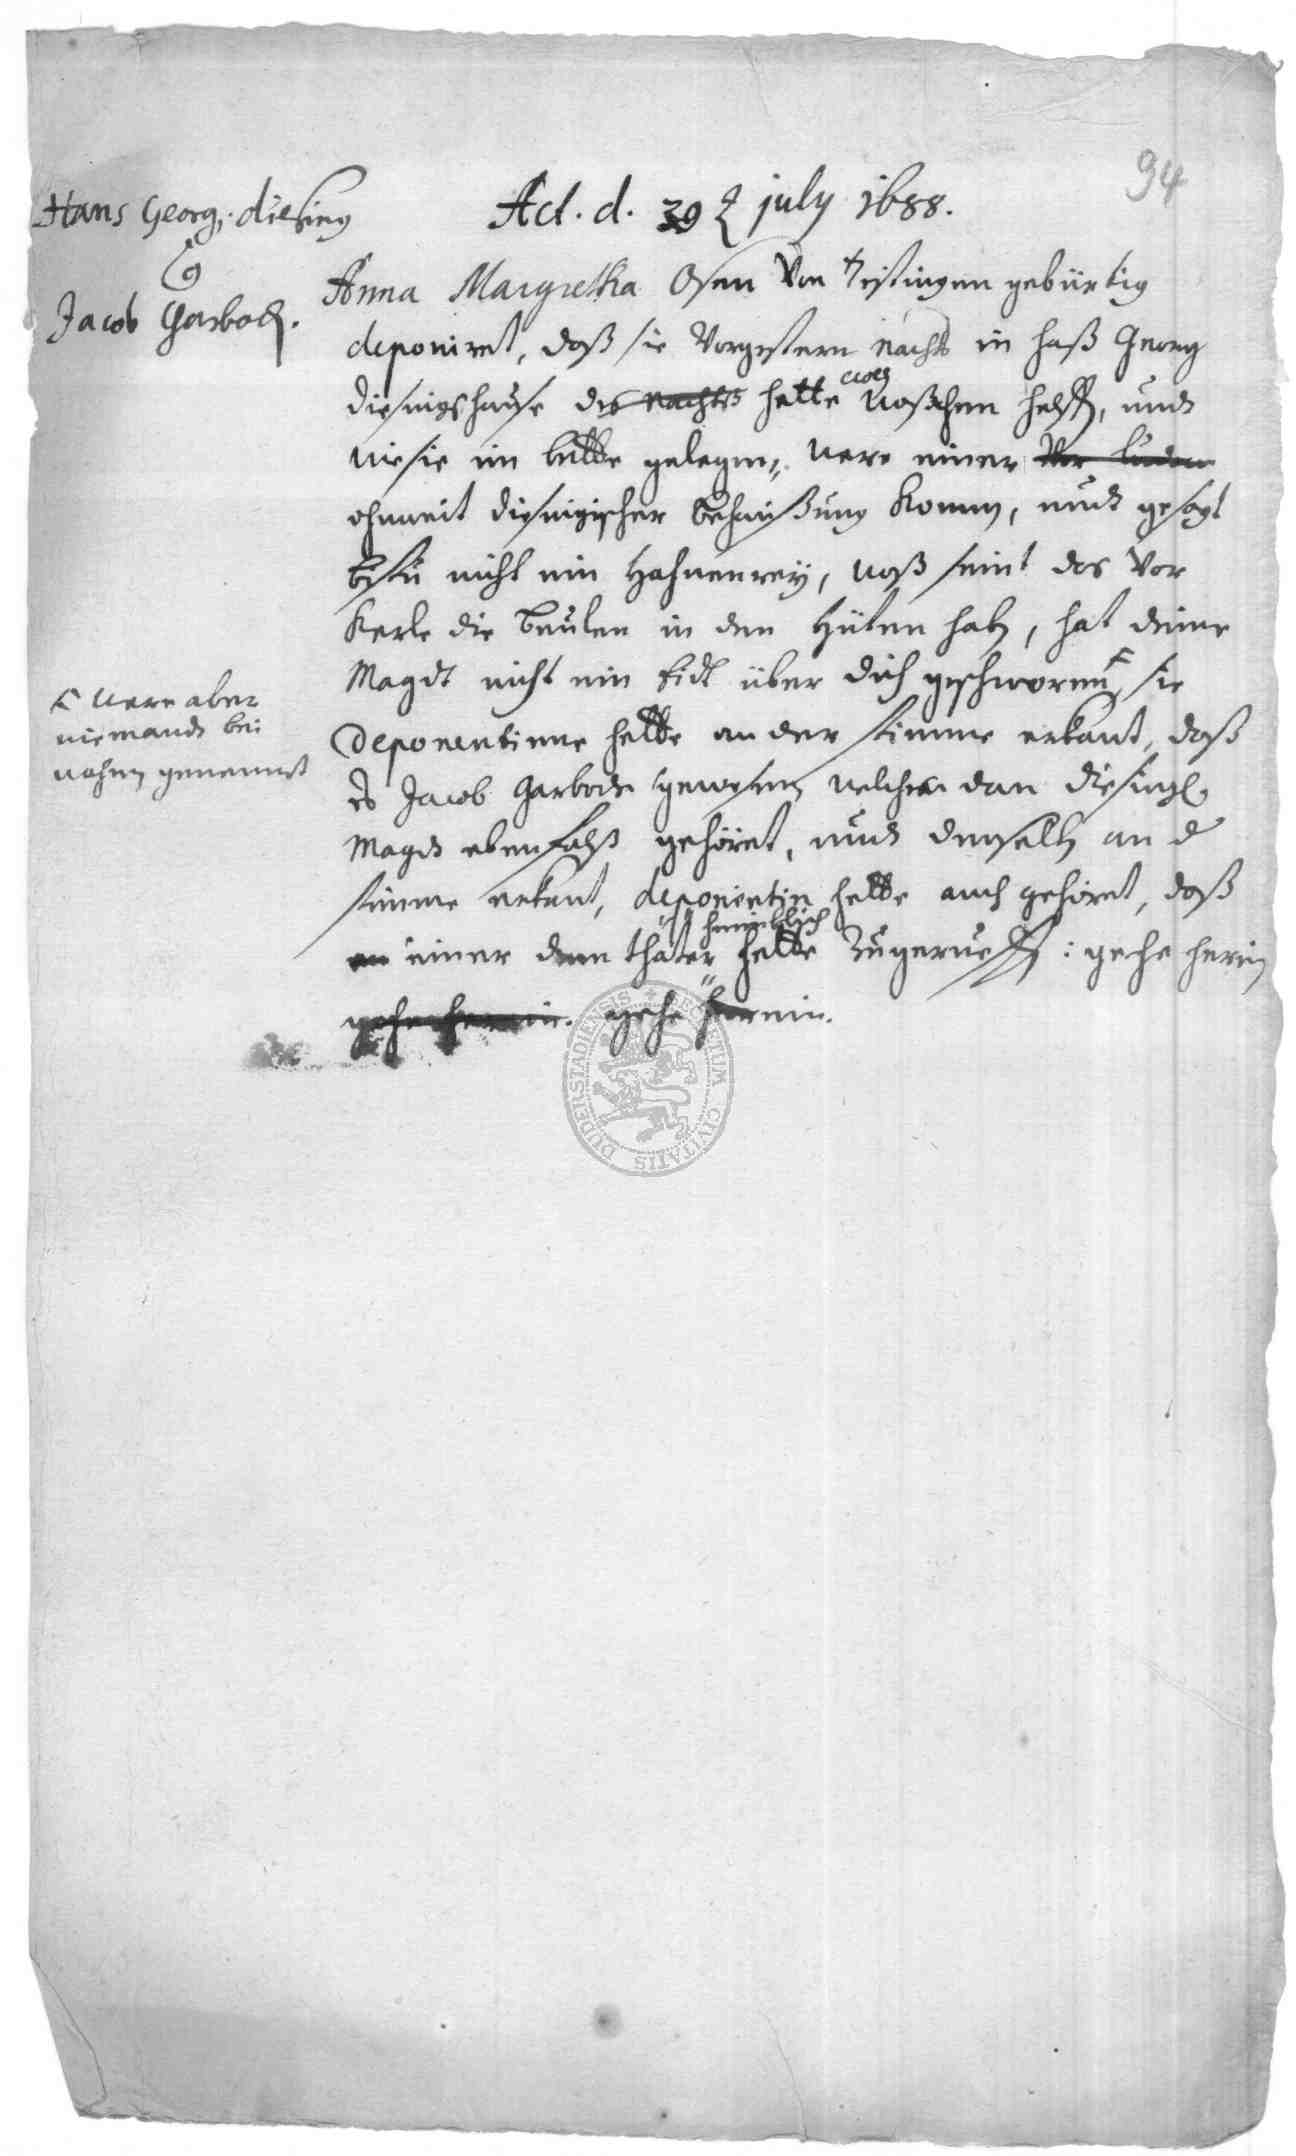 94
Hans Georg diesing
Ca
Jacob Garbode.
Act. d. 30 t july 1688.
Anna Margretha Osen Von gebürtig
deponiret, daß sie Vorgestern nachts in Hanß Georg
diesings hause des nachts hette waschen helffen, undt
wie sie im bette gelegen, were einer
ohnweit diesingischer behaußung kommen, undt gesagt
bistu nicht ein Hahnenrey, waß seint das Vor
Kerls die beulen in den Hüten haben, hat deine
Magdt nicht ein Eidt über dich geschworen, sie
Deponentinne hette an der stimme erkant, daß
es Jacob Garbode gewesen, welches dan diesings
Magdt ebenfalß gehöret, undt denselben an d
stimme erkant, deponentin hette auch gehöret, daß
heimblich
einer dem thäter hette zugerueffen: gehe herein
gehe herein. gehe herein.
were aber
niemandt bei
nahmen genennet
SECRETUM CIVITATIS DUDERSTADIENSIS